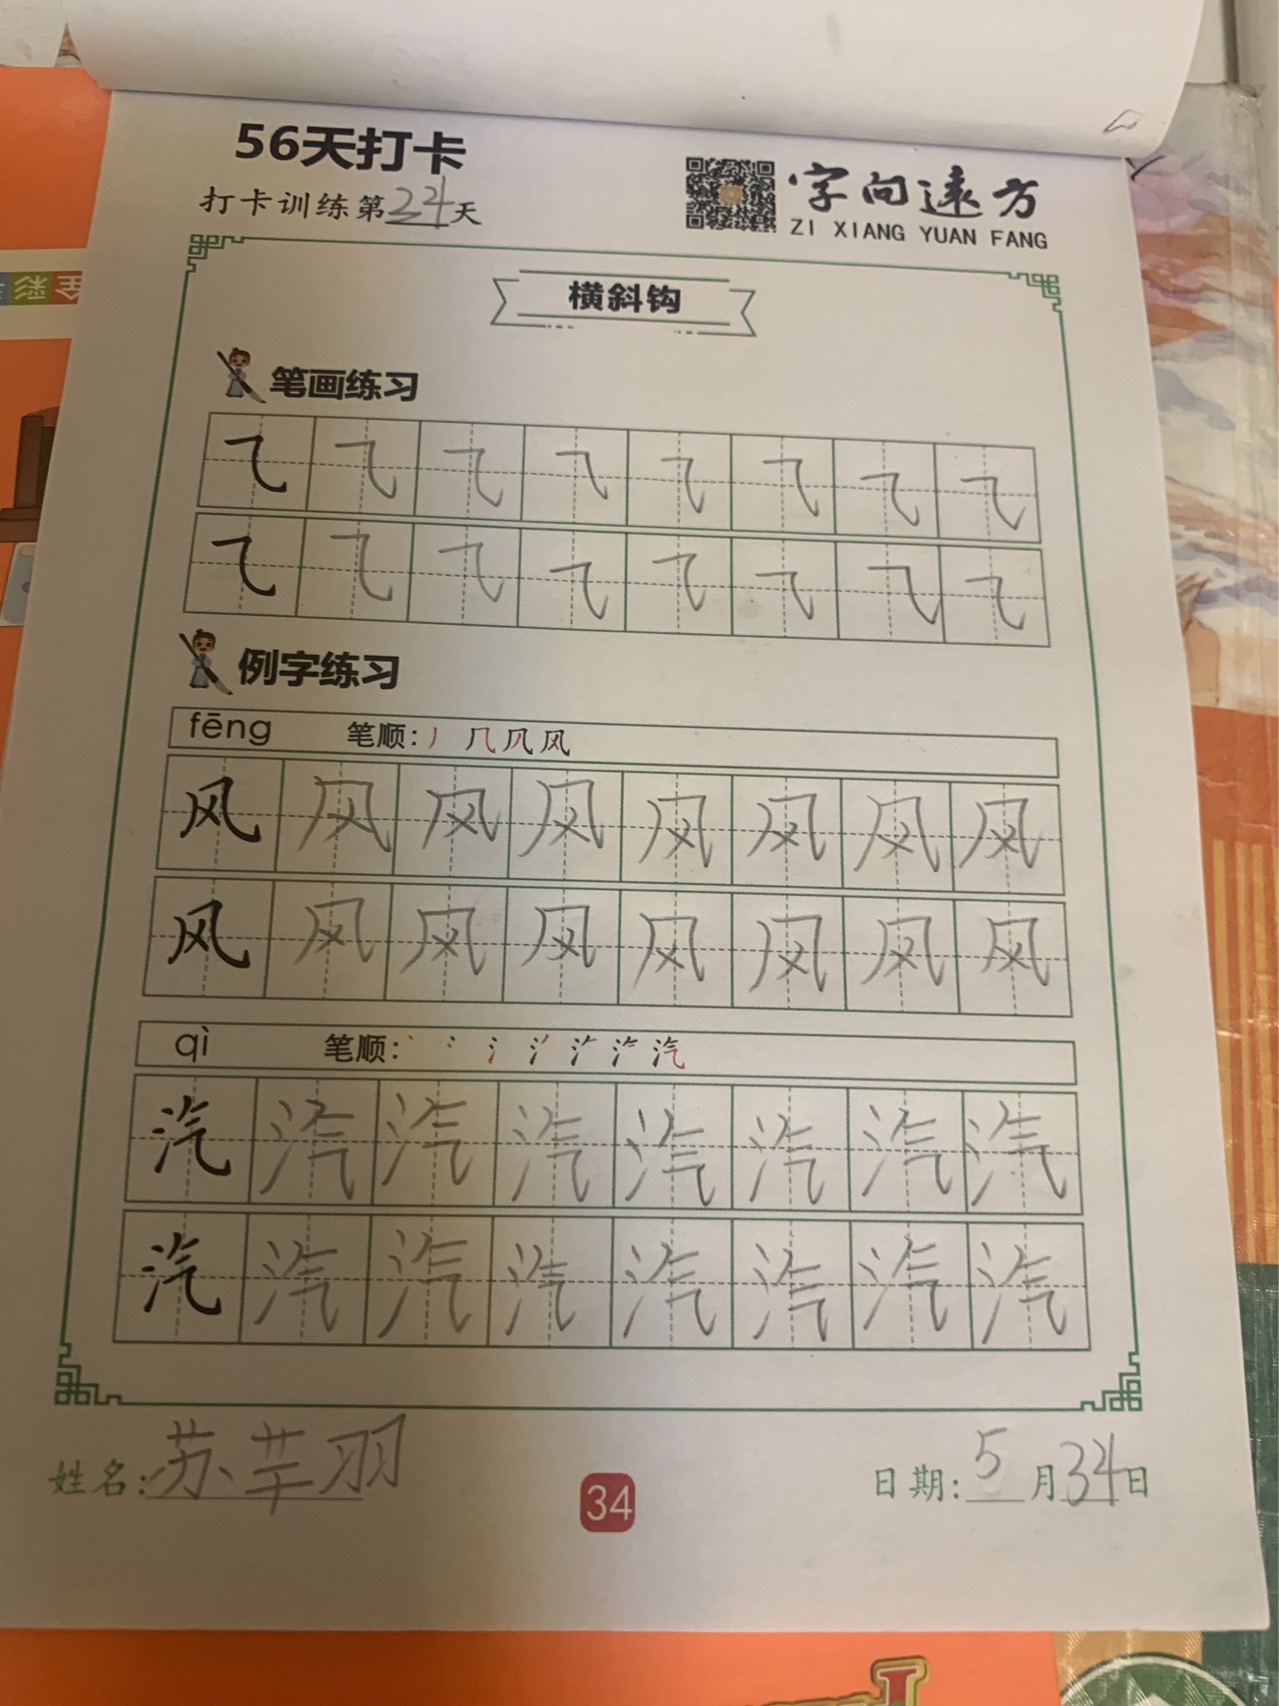 56天打卡
打卡训练第24天
字向远方
ZI XIANG YUAN FANG
横斜钩
笔画练习
⺄ ⺄ ⺄ ⺄ ⺄ ⺄ ⺄ ⺄
⺄ ⺄ ⺄ ⺄ ⺄ ⺄ ⺄ ⺄
例字练习
fēng 笔顺:
风 风 风 风 风 风 风 风
风 风 风 风 风 风 风 风
qì 笔顺:
汽 汽 汽 汽 汽 汽 汽 汽
汽 汽 汽 汽 汽 汽 汽 汽
姓名:苏芊羽
34
日期:5月34日
全彩